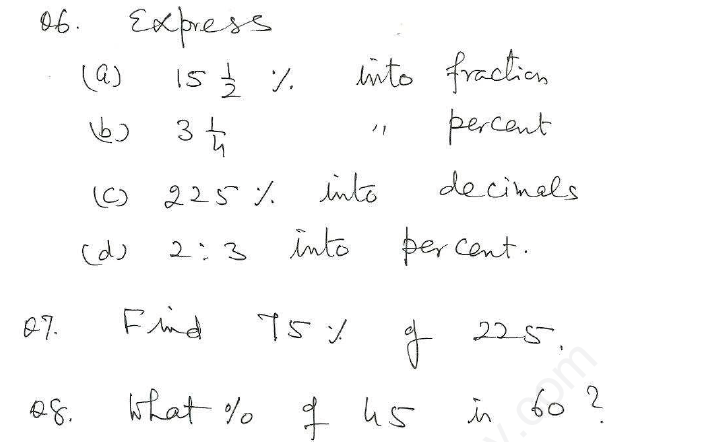 Q6. Express
(a) 15 1/2 % into fraction
(b) 3 1/4 " percent
(c) 225 % into decimals
(d) 2 : 3 into percent.
Q7. Find 75 % of 225.
Q8. What % of 45 is 60 ?
.com